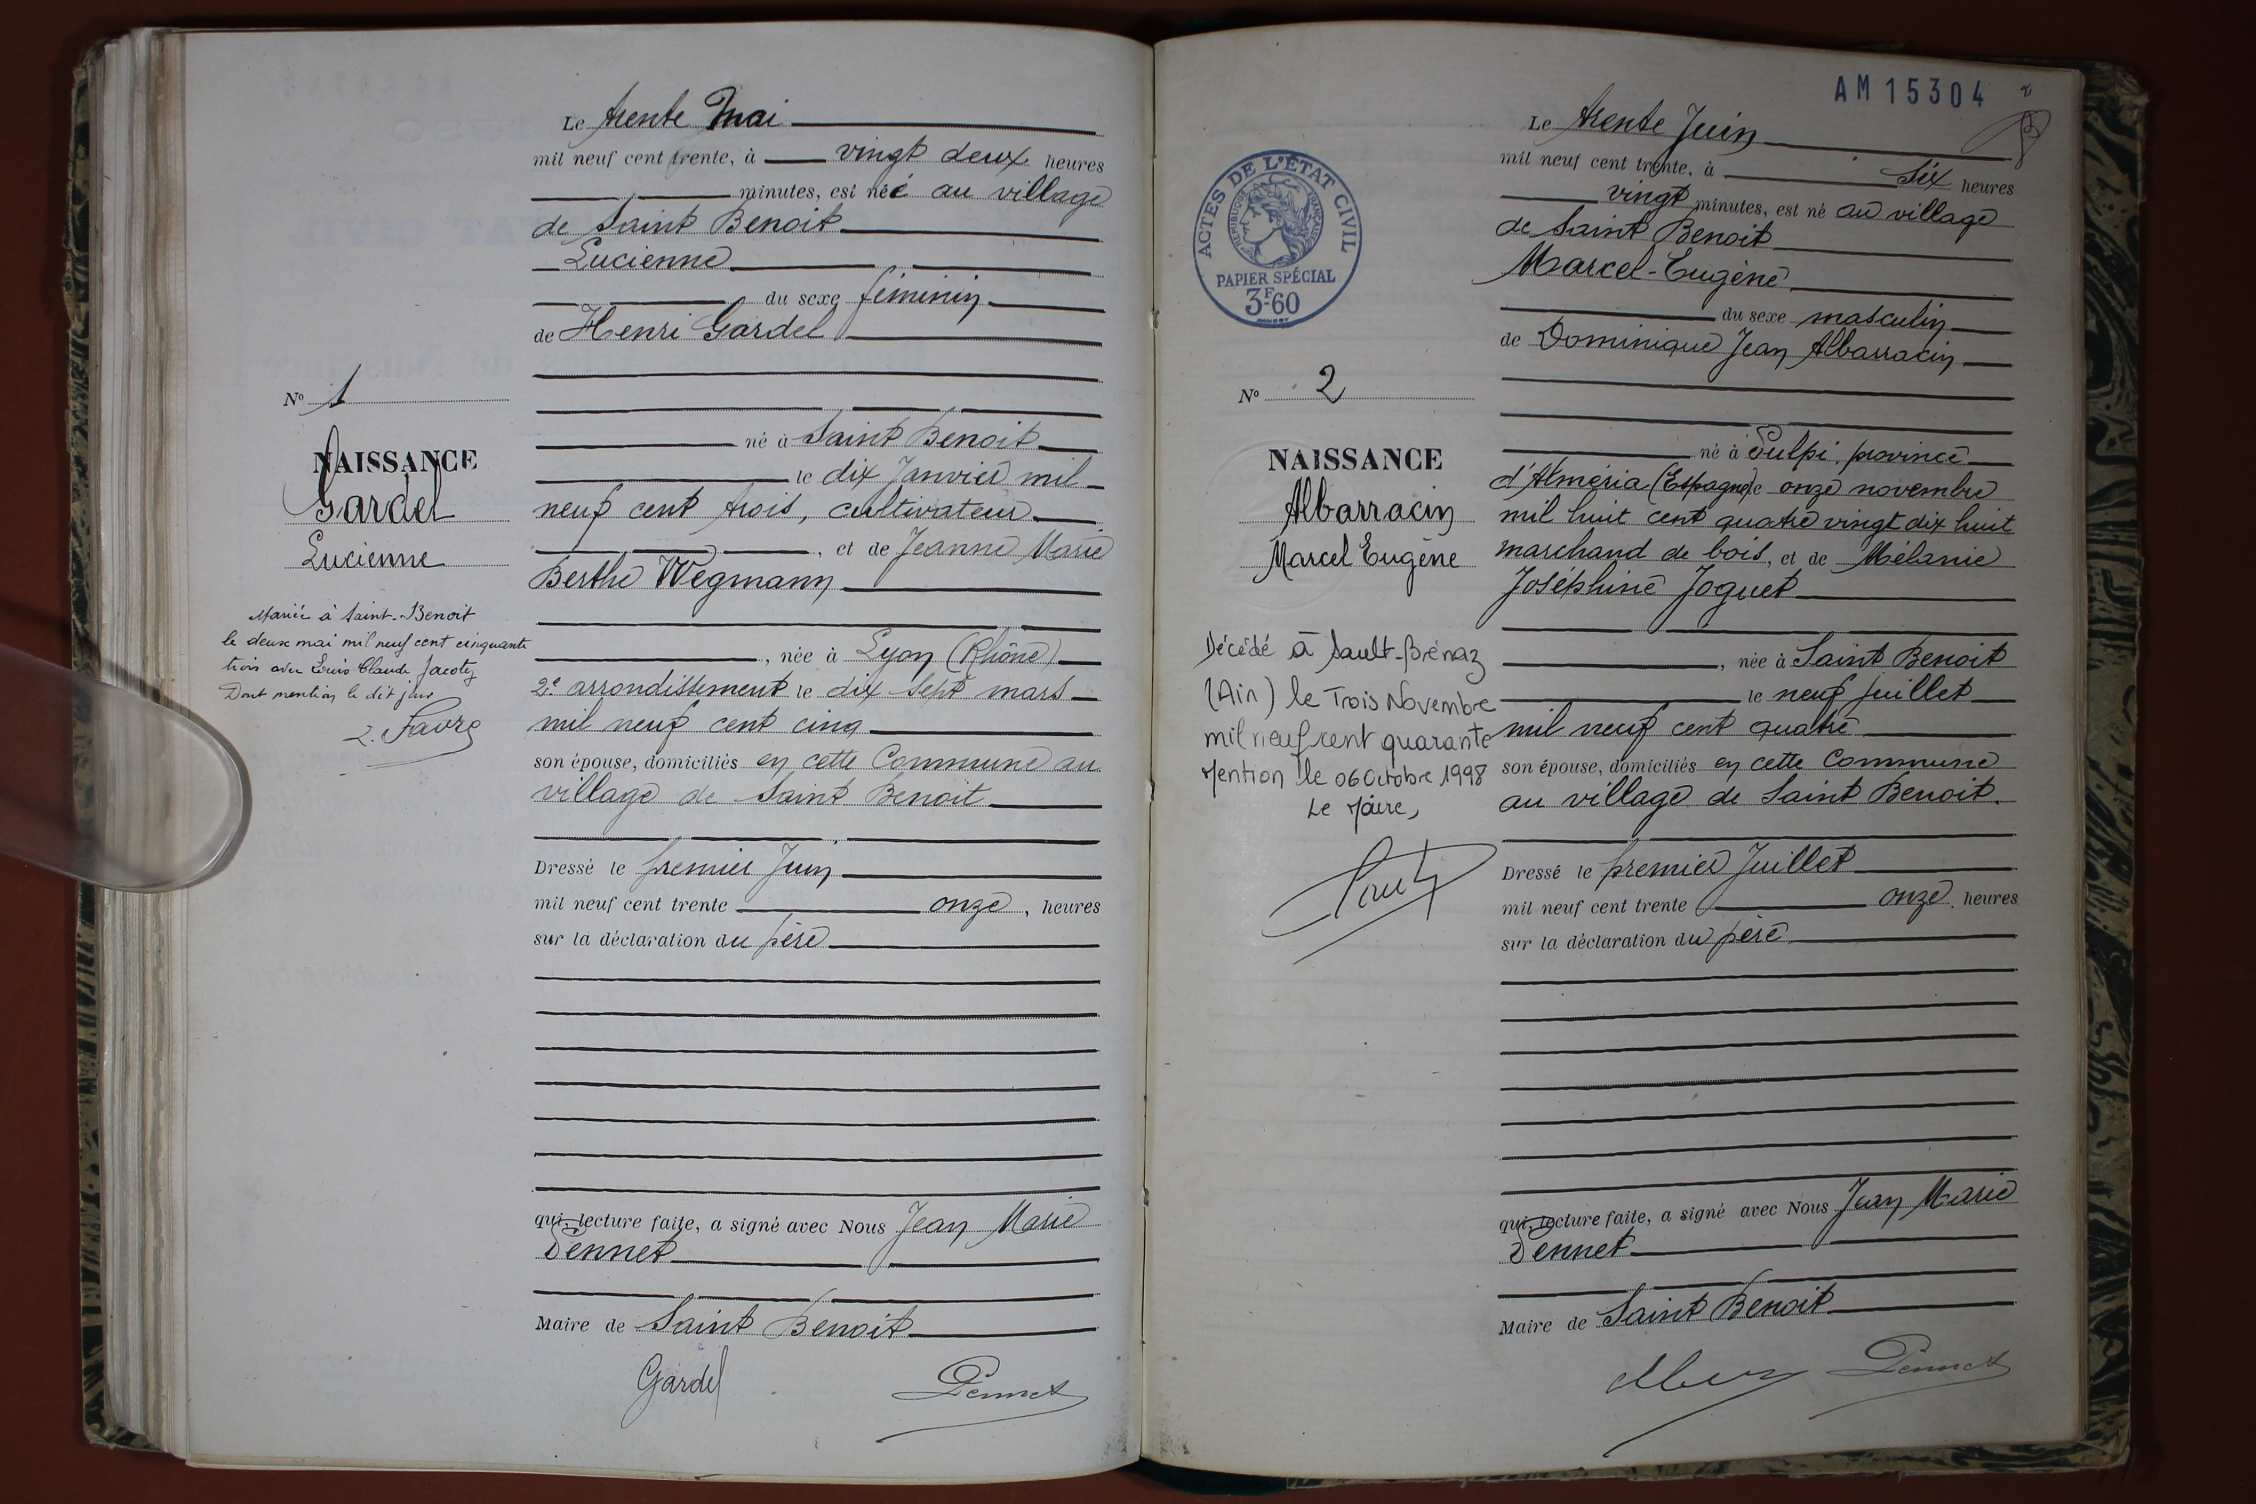 Le trente Mai
mil neuf cent trente, à vingt deux heures
minutes, est née au village
de Saint Benoit
Lucienne
du sexe féminin
de Henri Gardel
né à Saint Benoit
le dix Janvier mil
neuf cent trois, cultivateur
, et de Jeanne Marie
Berthe Wegmann
, née à Lyon (Rhône)
2e arrondissement le dix sept mars
mil neuf cent cinq
son épouse, domiciliés en cette Commune au
village de Saint Benoit
Dressé le premier Juin
mil neuf cent trente onze, heures
sur la déclaration du père
qui, lecture faite, a signé avec Nous Jean Marie
Pennet
Maire de Saint Benoit
Gardel Pennet
No 1
NAISSANCE
Gardel
Lucienne
Mariée à Saint-Benoit
le deux mai mil neuf cent cinquante
trois avec Louis Claude Jacotey
Dont mention le dit jour
L. Favre
AM 15304
2
ACTES DE L'ÉTAT CIVIL
RÉPUBLIQUE FRANÇAISE
PAPIER SPÉCIAL
3F-60
No 2
NAISSANCE
Albarracin
Marcel Eugène
Décédé à Sault-Brénaz
(Ain) le Trois Novembre
mil neuf cent quarante
Mention le 06 Octobre 1998
Le Maire,
Le trente Juin
mil neuf cent trente, à six heures
vingt minutes, est né au village
de Saint Benoit
Marcel-Eugène
du sexe masculin
de Dominique Jean Albarracin
né à Pulpi, province
d'Alméria (Espagne) le onze novembre
mil huit cent quatre vingt dix huit
marchand de bois, et de Mélanie
Joséphine Joguet
, née à Saint Benoit
le neuf juillet
mil neuf cent quatre
son épouse, domiciliés en cette Commune
au village de Saint Benoit.
Dressé le premier Juillet
mil neuf cent trente onze, heures
sur la déclaration du père
qui, lecture faite, a signé avec Nous Jean Marie
Pennet
Maire de Saint Benoit
Pennet